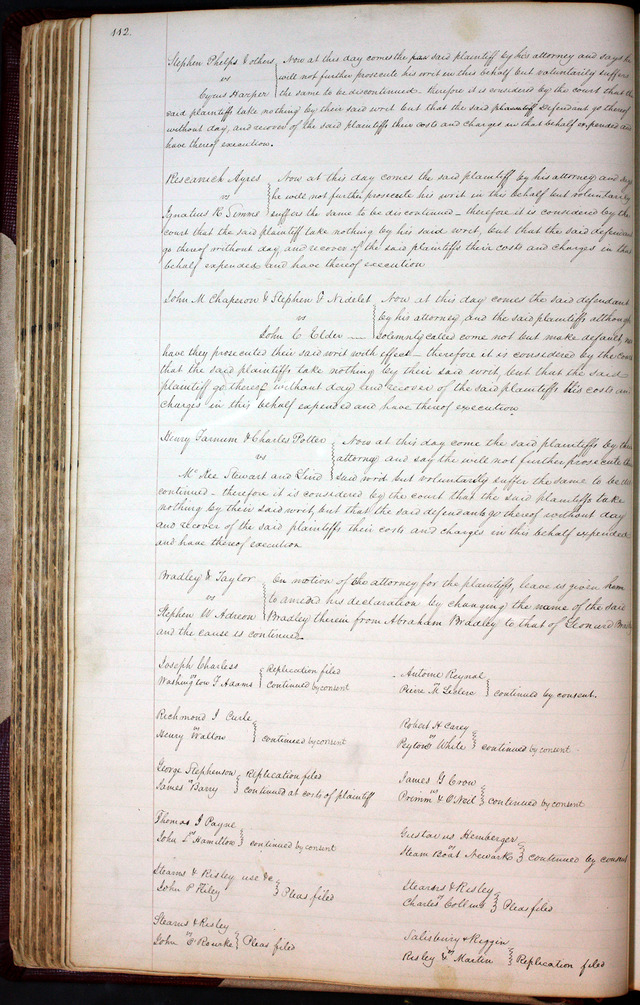 112.
Stephen Phelps & others, Now at this day comes the said plaintiff by his attorney and says he
vs will not further prosecute his writ in this behalf but voluntarily suffers
Cyrus Harper the same to be discontinued. therefore it is considered by the court that the
said plaintiffs take nothing by their said writ but that the said plaintiff Defendant go thereof
without day, and recover of the said plaintiffs their costs and charges in that behalf expended and
have thereof execution.
Ayres Now at this day comes the said plaintiff by his attorney and says
vs he will not further prosecute his writ in this behalf but voluntarily
Ignatius R Simms suffers the same to be discontinued – therefore it is considered by the
court that the said plaintiff take nothing by his said writ, but that the said defendant
go thereof without day and recover of the said plaintiffs their costs and charges in that
behalf expended and have thereof execution
John M Chaperon & Stephen F Nidelet Now at this day comes the said defendant
vs by his attorney and the said plaintiffs although
John C Elder — solemnly called come not but make default, nor
have they prosecuted their said writ with effect – therefore it is considered by the court
that the said plaintiffs take nothing by their said writ, but that the said
plaintiff go thereof without day and recover of the said plaintiffs His costs and
charges in this behalf expended and have thereof execution.
Henry Farnum & Charles Potter Now at this day come the said plaintiffs by their
vs attorney and say the will not further prosecute the
McKee Stewart and said writ but voluntarily suffer the same to be dis
continued – therefore it is considered by the court that the said plaintiffs take
nothing by their said writ, but that the said defendants go thereof without day
and recover of the said plaintiffs their costs and charges in this behalf expended
and have thereof execution
Bradley & Taylor On motion of the attorney for the plaintiffs, leave is given him
vs to amend his declaration by changing the name of the said
Stephen W Adreon Bradley therein from Abraham Bradley to that of Leonard Bradley
and the cause is continued.
Joseph Charless Replication filed
vs
Washington F Adams continued by consent
Antoine Reynal
vs
Pierre M Leclerc continued by consent.
Richmond J Curle
vs
Henry Wallow continued by consent
Robert H Carey
vs
Peyton White continued by consent
George Stephenson Replication filed
vs
James Barry continued at costs of plaintiff
James G Crow
vs
Primm & O'Neil continued by consent
Thomas J Payne
vs
John L Hamilton continued by consent
Gustavus Hemberger
vs
Steam Boat Newark continued by consent
Stearns & Risley use &c
vs
John P Pleas filed
Stearns & Risley
vs
Charles Collins Pleas filed
Stearns & Risley
vs
John O'Rourke Pleas filed
Salisbury & Riggin
vs
Risley & Martin Replication filed